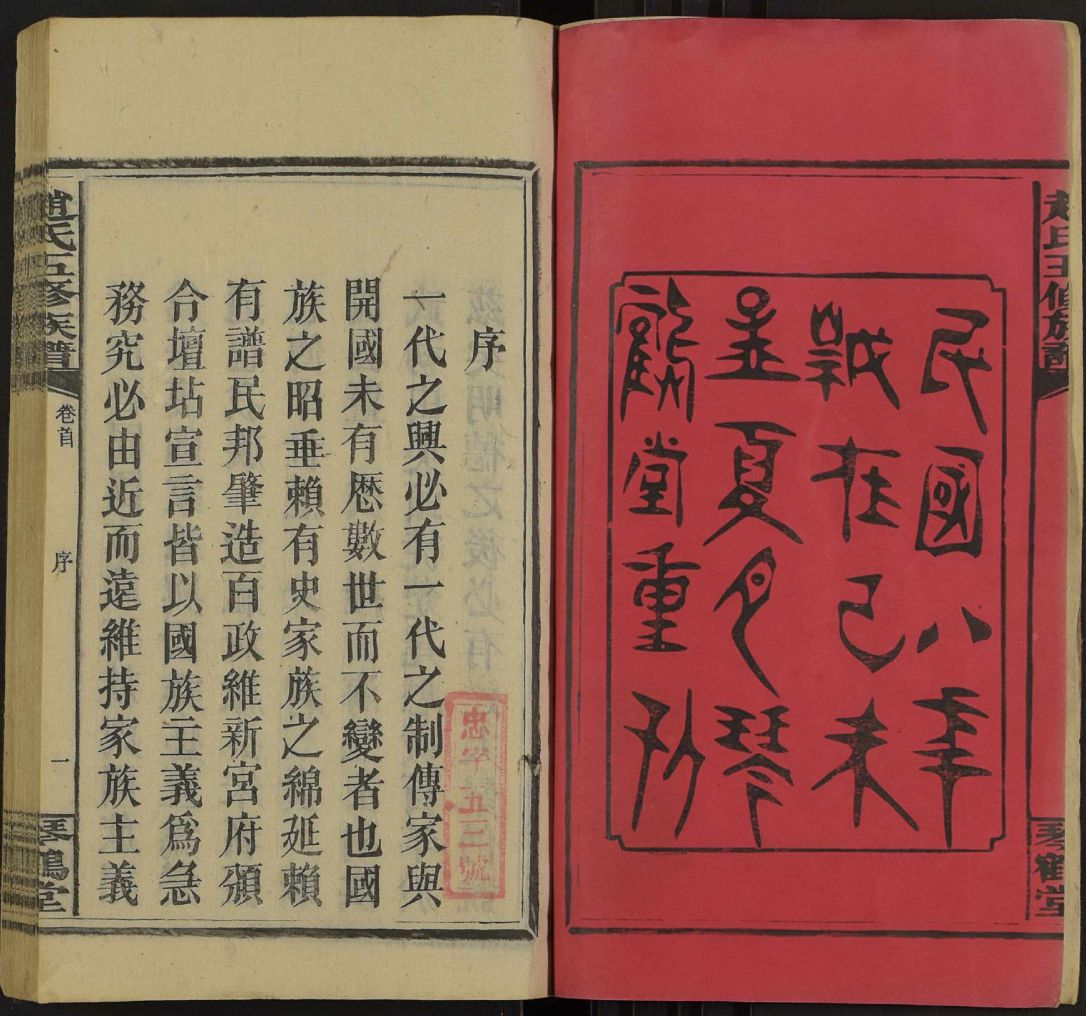 趙氏五修族譜
民國八年
歲在己未
孟夏月琴
鶴堂重刊
琴鶴堂
序
一代之興必有一代之制傳家與
開國未有歷數世而不變者也國
族之昭垂賴有史家族之綿延賴
有譜民邦肇造百政維新宮府頒
合壇坫宣言皆以國族主義為急
務究必由近而遠維持家族主義
忠字 五三號
趙氏五修族譜
卷首
序
一
琴鶴堂